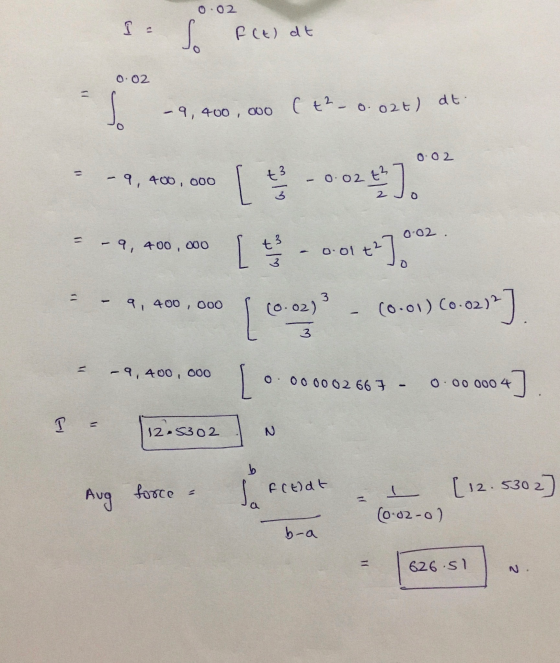 I = ∫₀^0.02 F(t) dt
= ∫₀^0.02 -9,400,000 (t² - 0.02t) dt.
= -9,400,000 [t³/3 - 0.02 t²/2]₀^0.02
= -9,400,000 [t³/3 - 0.01 t²]₀^0.02.
= -9,400,000 [(0.02)³/3 - (0.01)(0.02)²].
= -9,400,000 [0.000002667 - 0.000004].
I = 12.5302 N
Avg force = ∫ₐ^b F(t)dt / b-a = 1/(0.02-0) [12.5302]
= 626.51 N.